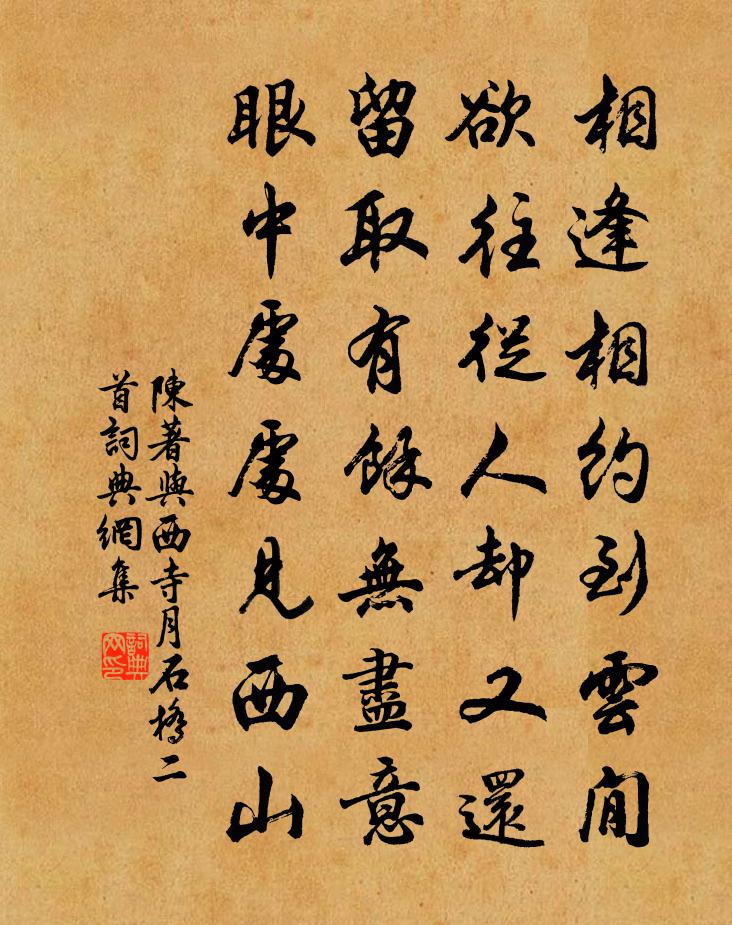 相逢相約到雲間
欲往從人却又還
留取有餘無盡意
眼中處處見西山
陳著與西寺月石橋二
首詞典網集
詞典網印